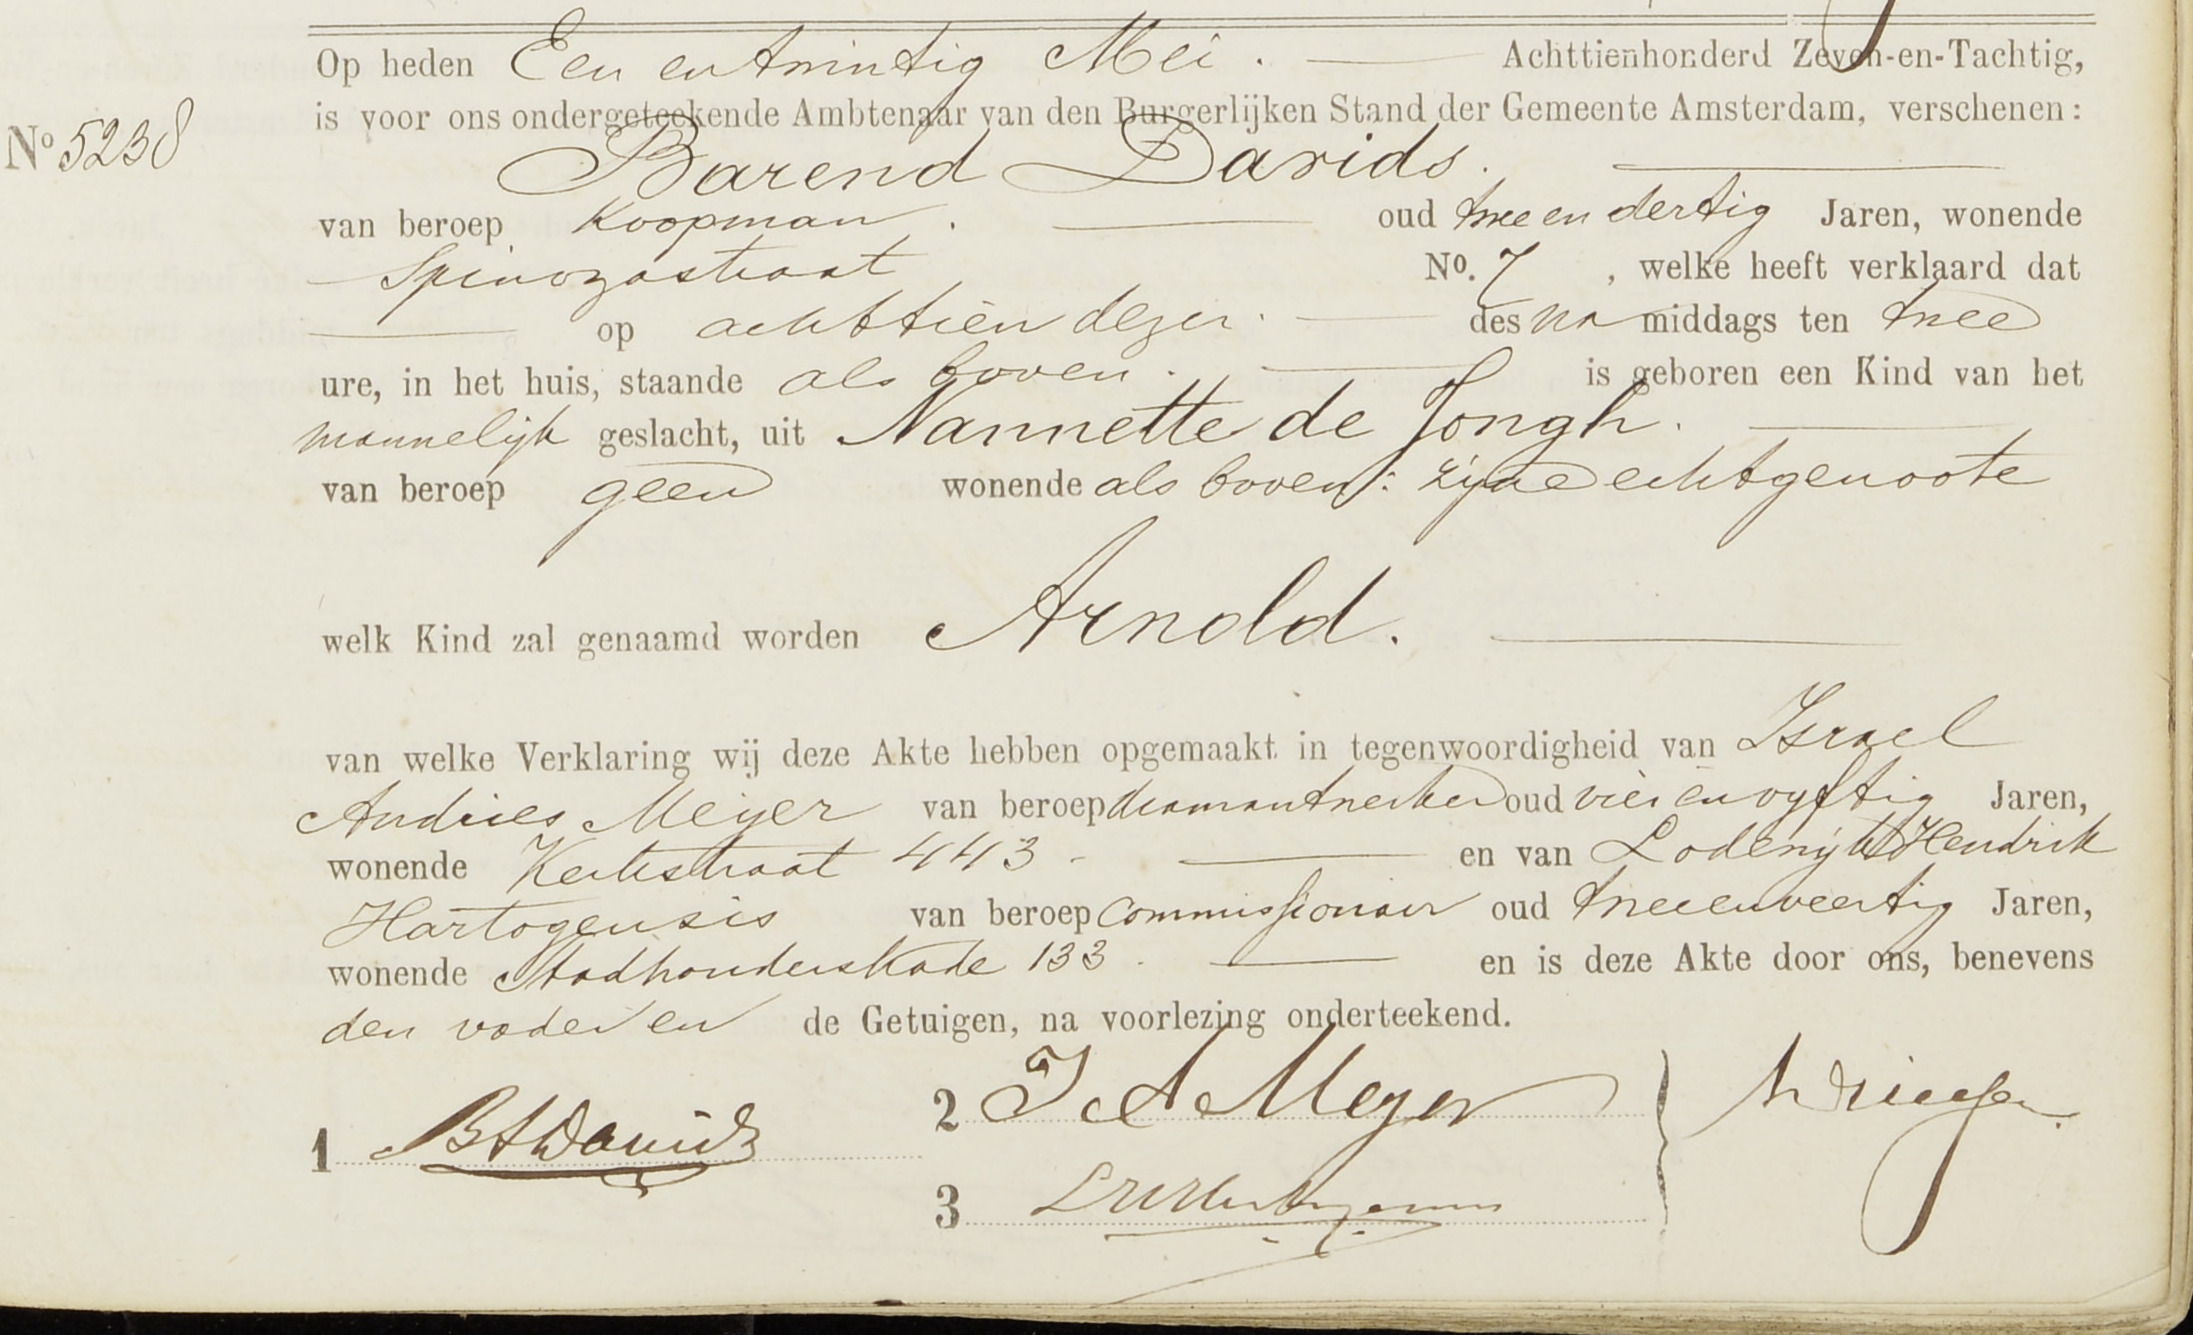 Op heden Een en twintig Mei. Achttienhonderd Zeven-en-Tachtig,
is voor ons ondergeteekende Ambtenaar van den Burgerlijken Stand der Gemeente Amsterdam, verschenen:
No 5238
Barend Davids.
van beroep Koopman. oud twee en dertig Jaren, wonende
Spinozastraat No. 7, welke heeft verklaard dat
op achttien dezer. des na middags ten twee
ure, in het huis, staande als boven. is geboren een Kind van het
mannelijk geslacht, uit Nannette de Jongh.
van beroep geen wonende als boven: zijne echtgenoote
welk Kind zal genaamd worden Arnold.
van welke Verklaring wij deze Akte hebben opgemaakt in tegenwoordigheid van Israel
Andries Meijer van beroep diamantwerker oud vier en vyftig Jaren,
wonende Kerkstraat 443 en van Lodewijk Hendrik
Hartogensis van beroep commissionair oud tweeenveertig Jaren,
wonende Stadhouderskade 133. en is deze Akte door ons, benevens
den vader en de Getuigen, na voorlezing onderteekend.
1 B A Davids
2 I A Meyer
3 L H Hartogensis